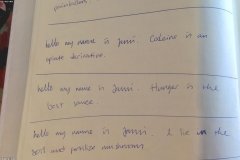 hello my name is Jenni. Codeine is an
opiate derivative.
hello my name is Jenni. Hunger is the
best sauce.
hello my name is Jenni. I lie in the
soil and fertilise mushrooms